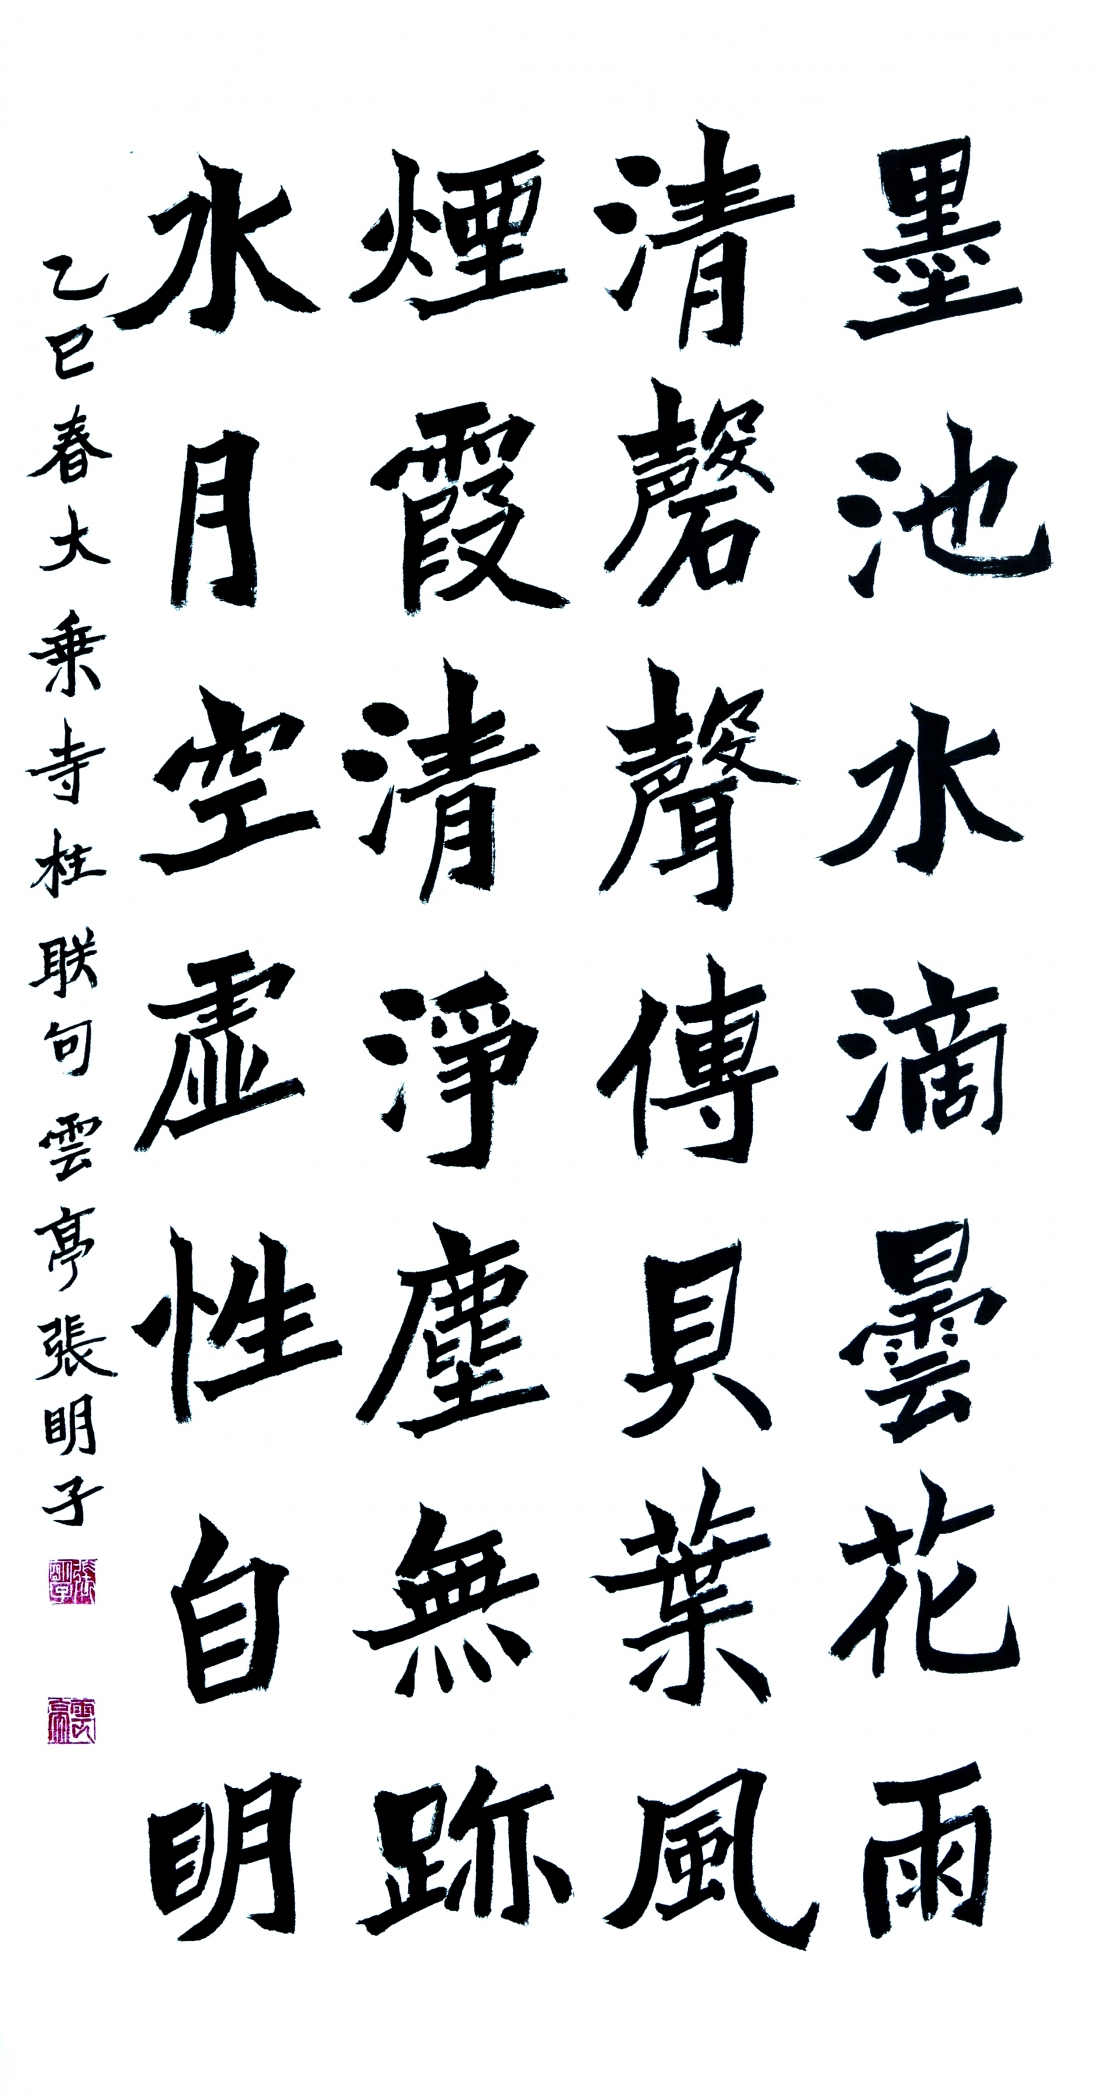 墨池水滴曇花雨
清磬聲傳貝葉風
煙霞清淨塵無跡
水月空虛性自明
乙巳春大乗寺柱联句雲亭張明子
張明子
雲亭